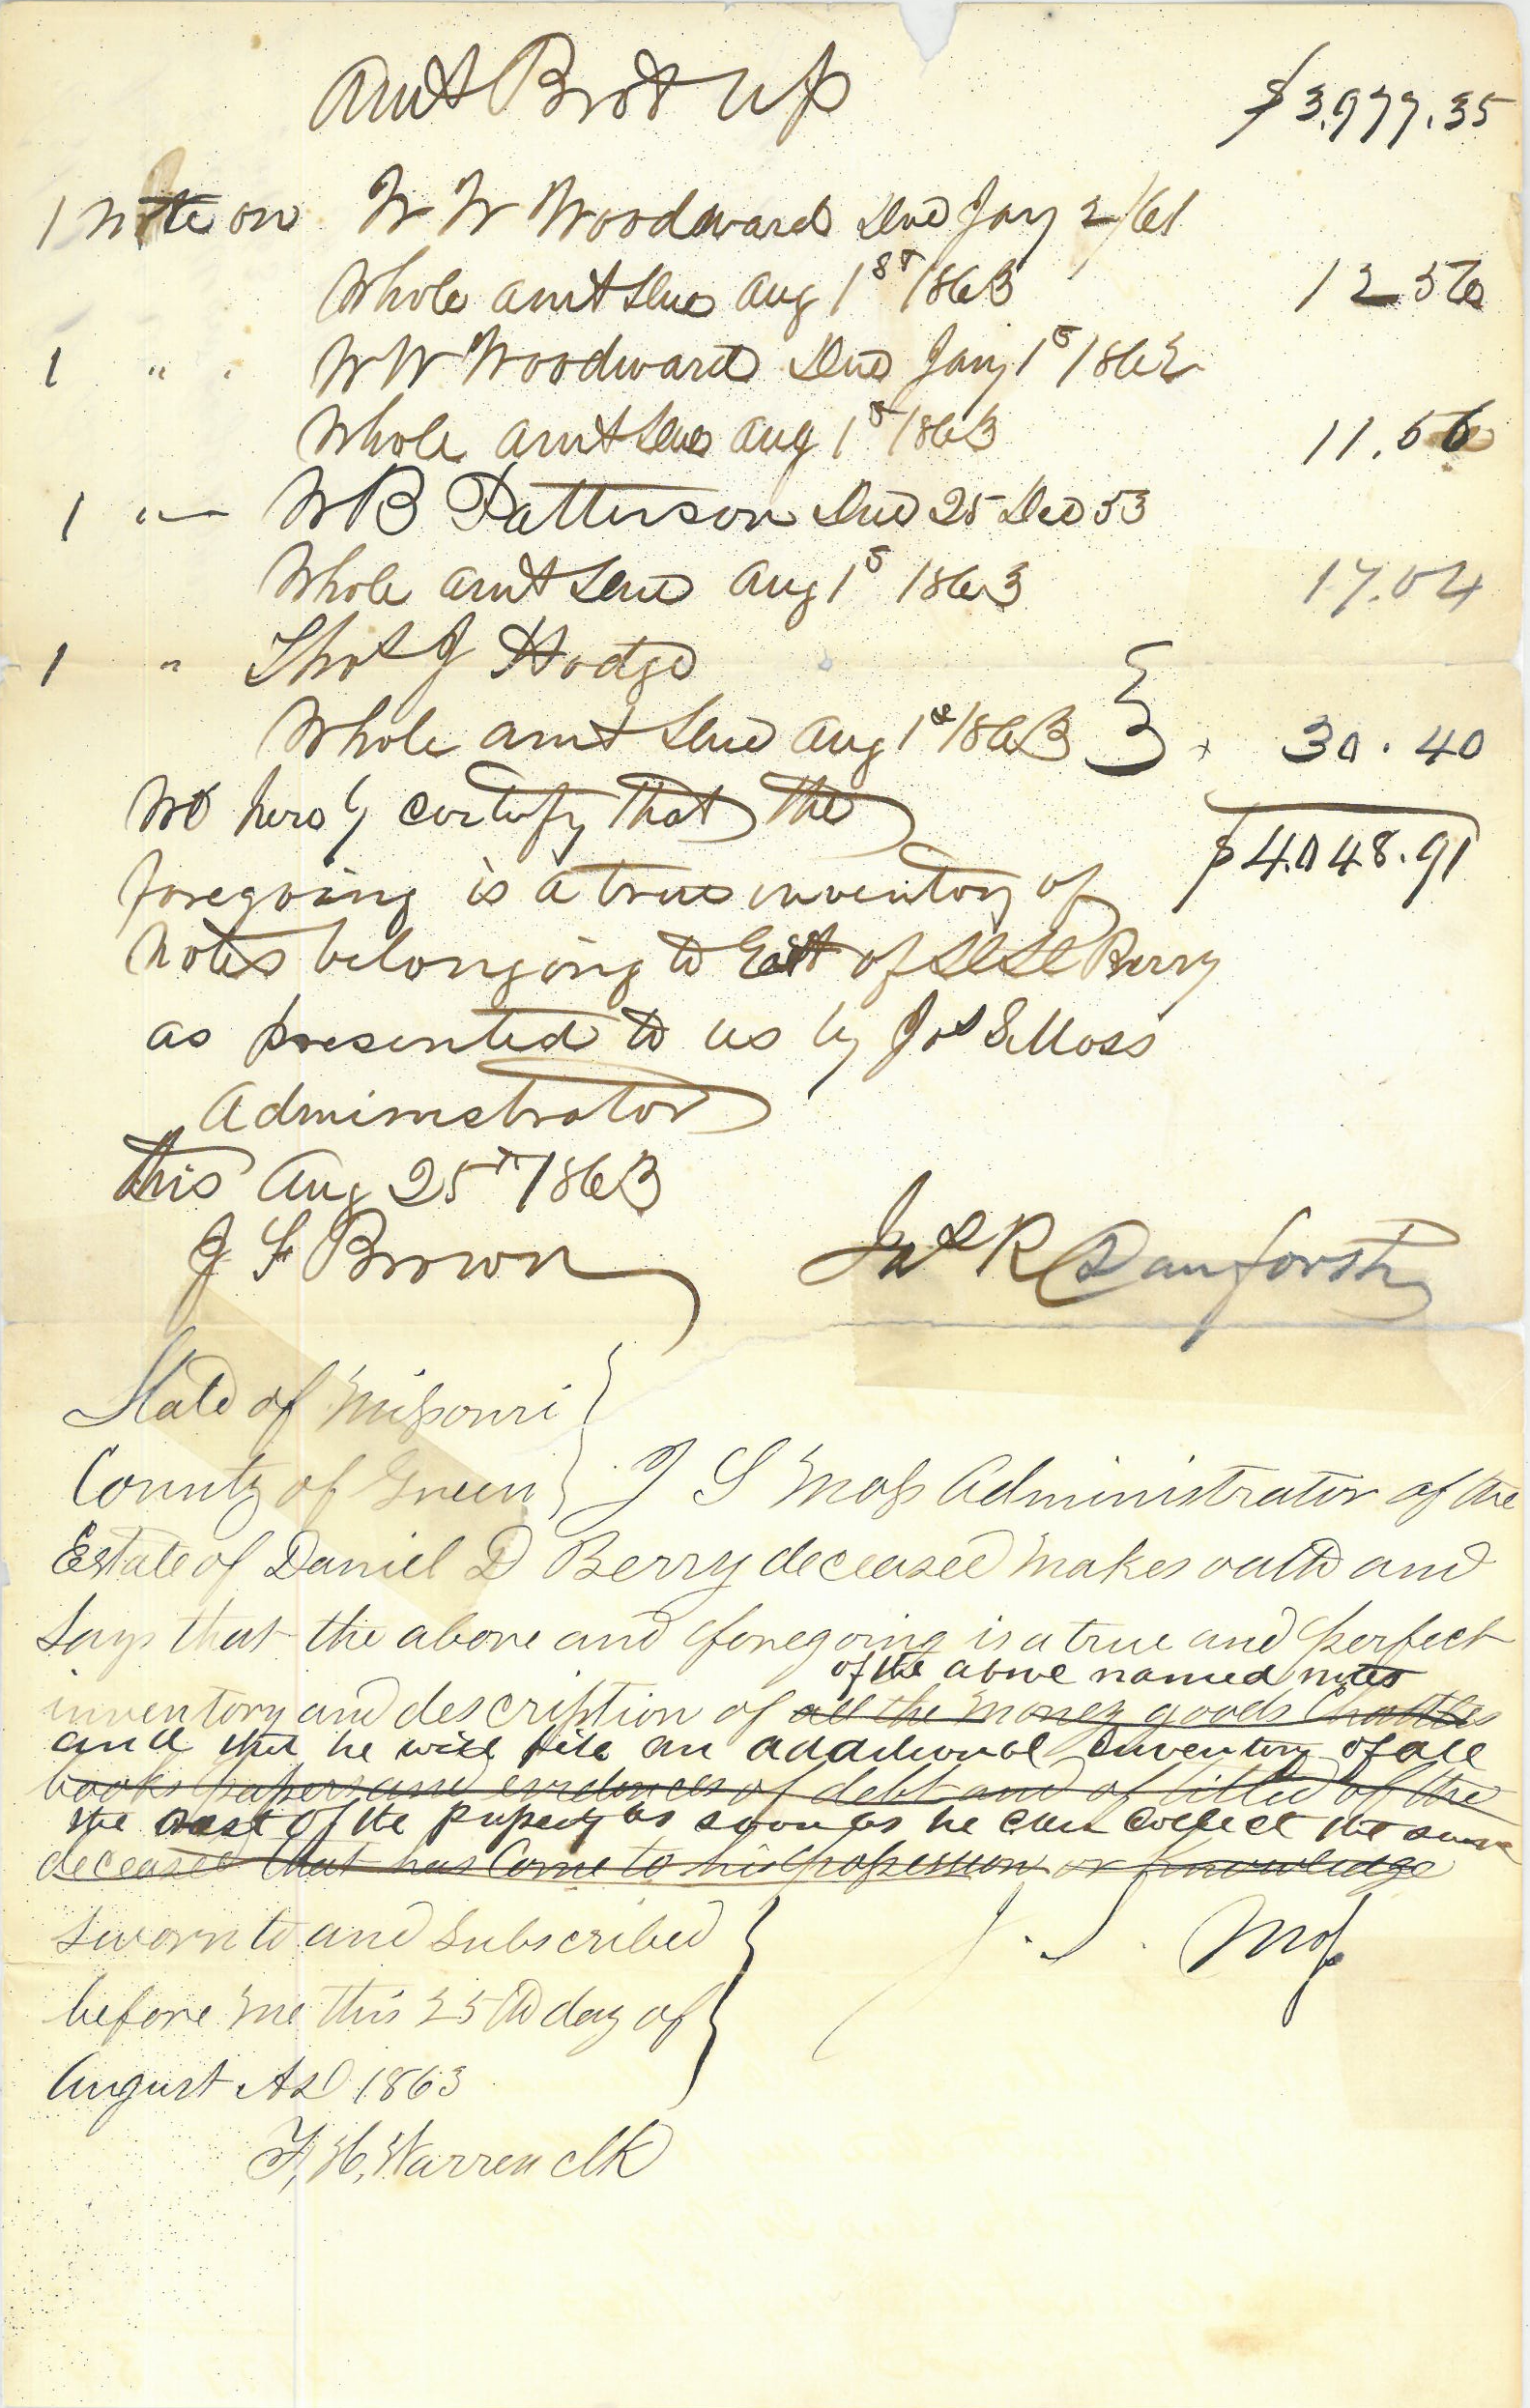 Amt Brot up $3,977.35
1 Note on W W Woodward Due Jany 2/61
Whole amt Due Aug 1st 1863 12 56
1 " " W W Woodward Due Jany 1s 1862
Whole amt Due Aug 1s 1863 11.56
1 " — W B Patterson Due 25 Dec 53
Whole amt Due Aug 1s 1863 17.04
1 " Thos J Hodge
Whole amt Due Aug 1st 1863 } 30.40
We hereby certify that the
$4.048.91
foregoing is a true inventory of
Notes belonging to Est of D D Berry
as presented to us by Jos S Moss
Administrator
this Aug 25th 1863
J F Brown Jos R Danforth
State of Missouri }
County of Green } J S Moss Administrator of the
Estate of Daniel D Berry deceased makes oath and
Says that the above and foregoing is a true and perfect
of the above named notes
inventory and description of all the money goods Chattles
and that he will file an additional inventory of all
books papers and evidences of debt and of titles of the
the rest of the property as soon as he can collect the same
deceased that has Come to his possession or knowledge
Sworn to and Subscribed } J. S. Moss
before me this 25th day of
August AD 1863
F, H, Warren clk